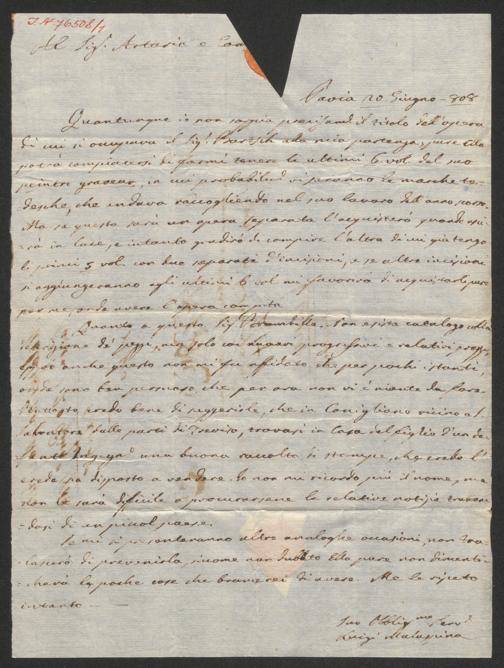 I.N. 76508/1
Al Sig.r Artaria e Com
Pavia 20 Giugno - 808
Quantunque io non sappia precisam.e il titolo dell'opera
di cui si occupava il Sig.r Bartsch alla mia partenza, pure Ella
potrà compiacersi di farmi tenere li ultimi 6 vol. del suo
peintre graveur, in cui probabilm.e vi saranno le marche te-
desche, che andava raccogliendo nel suo lavoro dell'anno scorso.
Ma se questo sarà un opera separata l'acquisterò quando esci-
rà in luce, e intanto gradirò di compire l'altra di cui già tengo
li primi 5 vol. con due separate d'incisioni, e se altre incisioni
si aggiungeranno agli ultimi 6 vol. mi favorirà di acquistarle pure
per me, onde avere l'opera compita.
Quanto a questo Sig.r non esiste catalogo nella
de' pezzi, ma solo coi numeri progressivi e relativi
anche questo non mi fu affidato che per pochi istanti
onde sono ben persuaso che per ora non vi è niente da fare.
credo bene di suggerirle, che in Conigliano vicino a S.
Salvatore sulle parti di Treviso, trovasi in Casa del figlio d'un de-
una buona raccolta di stampe, che credo l'
erede sia disposto a vendere. Io non mi ricordo più il nome, ma
non le sarà difficile a procurarsene le relative notizie trattan-
dosi di un piccol paese.
Se mi si presenteranno altre analoghe occasioni, non tra-
lascerò di prevenirla, siccome non dubito Ella pure non dimenti-
cherà le poche cose che bramerei di avere. Me le ripeto
intanto
Suo Obblig.mo Serv.e
Luigi Malaspina